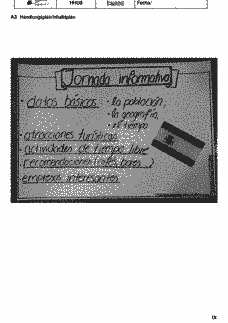 Fecha:
A3 Handlungsplan/Inhaltsplan
Jornada informativa
• datos básicos • la población,
• la geografía,
• el tiempo
• atracciones turísticas
• actividades de tiempo libre
recomendaciones (cafés, bares...)
empresas interesantes